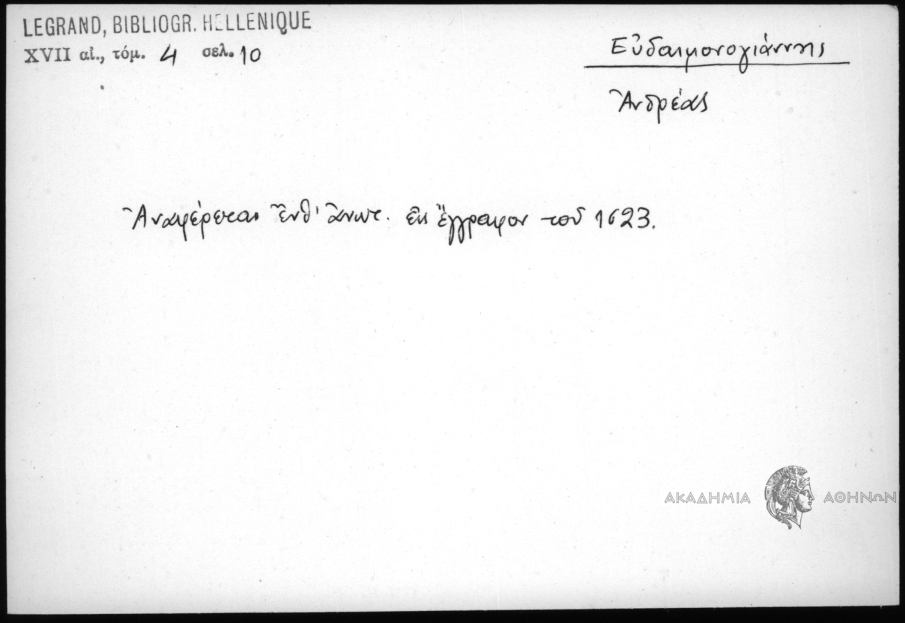 LEGRAND, BIBLIOGR. HELLENIQUE
XVII αἰ., τόμ. 4 σελ. 10
Εὐδαιμονογιάννης
Ἀνδρέας
Ἀναφέρεται ἔνθ' ἀνωτ. εἰς ἔγγραφον τοῦ 1623.
ΑΚΑΔΗΜΙΑ ΑΘΗΝΩΝ